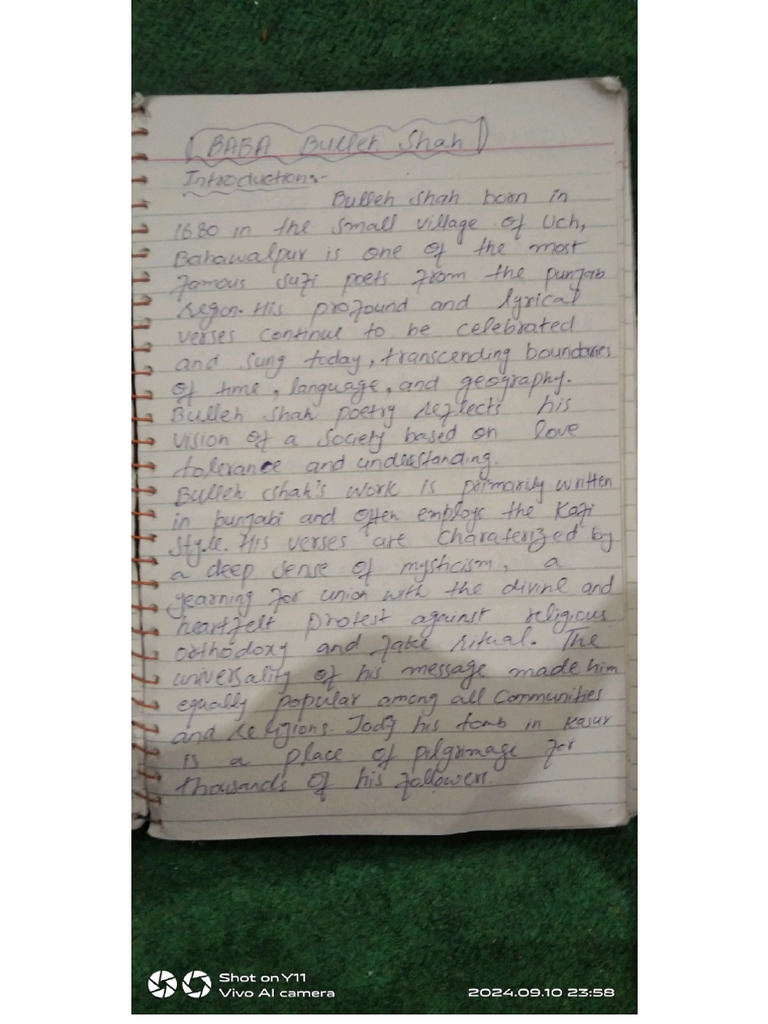 BABA Bulleh Shah
Introduction:-
Bulleh Shah born in
1680 in the small village of Uch,
Bahawalpur is one of the most
famous sufi poets from the punjab
region. His profound and lyrical
verses continue to be celebrated
and sung today, transcending boundaries
of time, language, and geography.
Bulleh Shah poetry reflects his
vision of a society based on love
tolerance and understanding.
Bulleh Shah's work is primarily written
in punjabi and often employs the Kafi
style. His verses are charaterized by
a deep sense of mysticism, a
yearning for union with the divine and
heartfelt protest against religious
orthodoxy and fake ritual. The
universality of his message made him
equally popular among all Communities
and religions. Tody his tomb in Kasur
is a place of pilgrimage for
thousands of his followers.
Shot on Y11
Vivo AI camera
2024.09.10 23:58